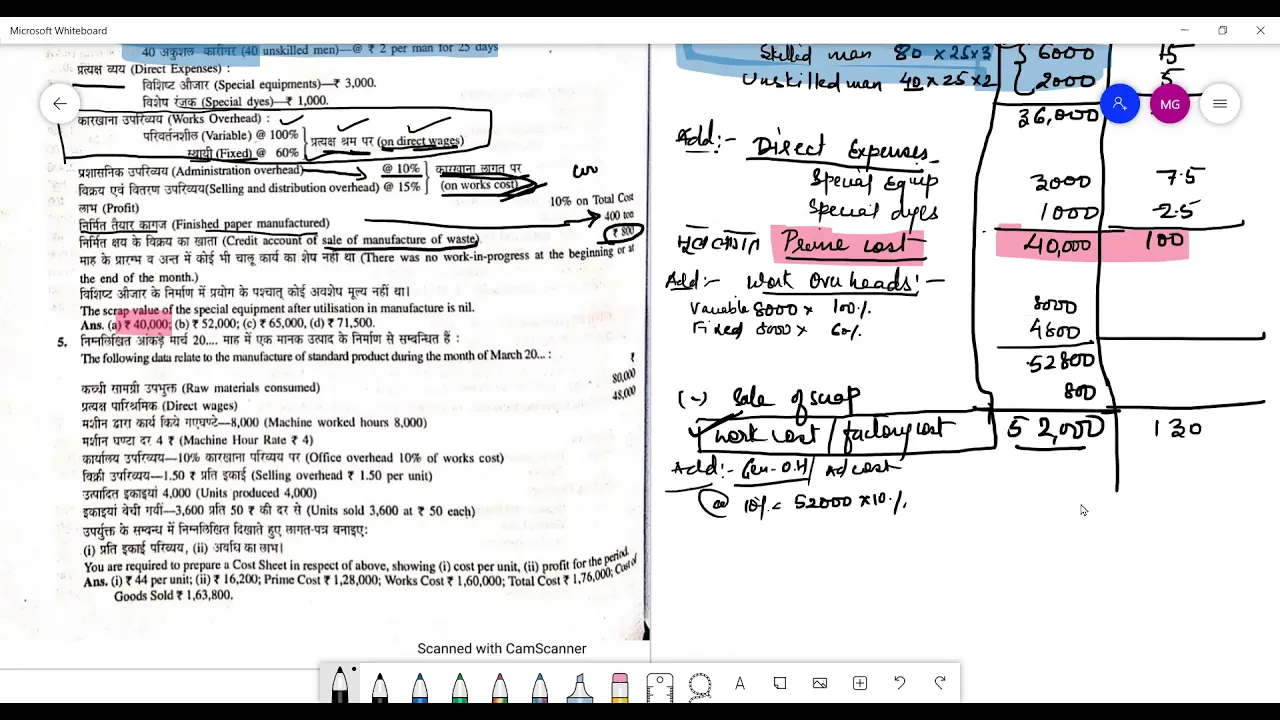 Microsoft Whiteboard
40 अकुशल कारीगर (40 unskilled men)—@ ₹ 2 per man for 25 days
प्रत्यक्ष व्यय (Direct Expenses) :
विशिष्ट औजार (Special equipments)—₹ 3,000.
विशेष रंजक (Special dyes)—₹ 1,000.
कारखाना उपरिव्यय (Works Overhead) :
परिवर्तनशील (Variable) @ 100%
स्थायी (Fixed) @ 60%
प्रत्यक्ष श्रम पर (on direct wages)
प्रशासनिक उपरिव्यय (Administration overhead) @ 10%
विक्रय एवं वितरण उपरिव्यय(Selling and distribution overhead) @ 15%
कारखाना लागत पर
(on works cost)
लाभ (Profit) 10% on Total Cost
निर्मित तैयार कागज (Finished paper manufactured) 400 ton
निर्मित क्षय के विक्रय का खाता (Credit account of sale of manufacture of waste) ₹ 800
माह के प्रारम्भ व अन्त में कोई भी चालू कार्य का शेष नहीं था (There was no work-in-progress at the beginning or at
the end of the month.)
विशिष्ट औजार के निर्माण में प्रयोग के पश्चात् कोई अवशेष मूल्य नहीं था।
The scrap value of the special equipment after utilisation in manufacture is nil.
Ans. (a) ₹ 40,000; (b) ₹ 52,000; (c) ₹ 65,000, (d) ₹ 71,500.
5. निम्नलिखित आंकड़े मार्च 20.... माह में एक मानक उत्पाद के निर्माण से सम्बन्धित हैं :
The following data relate to the manufacture of standard product during the month of March 20... :
₹
कच्ची सामग्री उपभुक्त (Raw materials consumed) 80,000
प्रत्यक्ष पारिश्रमिक (Direct wages) 48,000
मशीन द्वारा कार्य किये गए घण्टे—8,000 (Machine worked hours 8,000)
मशीन घण्टा दर 4 ₹ (Machine Hour Rate ₹ 4)
कार्यालय उपरिव्यय—10% कारखाना परिव्यय पर (Office overhead 10% of works cost)
बिक्री उपरिव्यय—1.50 ₹ प्रति इकाई (Selling overhead ₹ 1.50 per unit)
उत्पादित इकाइयां 4,000 (Units produced 4,000)
इकाइयां बेची गयीं—3,600 प्रति 50 ₹ की दर से (Units sold 3,600 at ₹ 50 each)
उपर्युक्त के सम्बन्ध में निम्नलिखित दिखाते हुए लागत-पत्र बनाइए:
(i) प्रति इकाई परिव्यय, (ii) अवधि का लाभ।
You are required to prepare a Cost Sheet in respect of above, showing (i) cost per unit, (ii) profit for the period.
Ans. (i) ₹ 44 per unit; (ii) ₹ 16,200; Prime Cost ₹ 1,28,000; Works Cost ₹ 1,60,000; Total Cost ₹ 1,76,000; Cost of
Goods Sold ₹ 1,63,800.
Scanned with CamScanner
Skilled man 80 x 25 x 3 6000 15
Unskilled man 40 x 25 x 2 2000 5
36,000
MG
Add:- Direct Expenses
Special Equip 3000 7.5
Special dyes 1000 2.5
Prime cost 40,000 100
Add:- Work Overheads:-
Variable 8000 x 100% 8000
Fixed 8000 x 60% 4800
52800
(-) Sale of scrap 800
Work cost / factory cost 52,000 130
Add:- Gen-O.H / Ad cost
@ 10% = 52000 x 10%
A